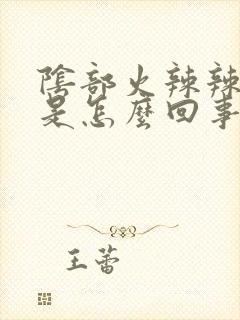 陰部火辣辣
是怎麼回事
王蕾